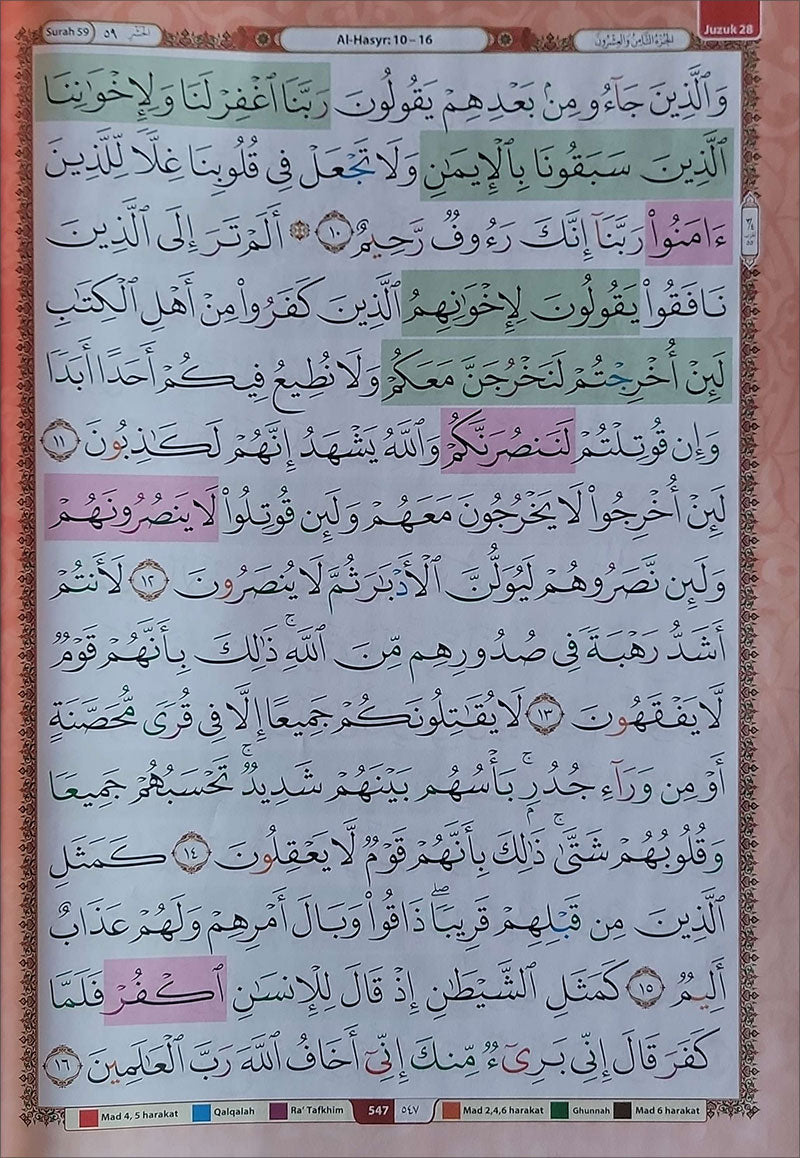 Surah 59 ٥٩ الحشر
Al-Hasyr: 10 – 16
الجزء الثامن والعشرون
Juzuk 28
وَٱلَّذِينَ جَآءُو مِنۢ بَعْدِهِمْ يَقُولُونَ رَبَّنَا ٱغْفِرْ لَنَا وَلِإِخْوَٰنِنَا
ٱلَّذِينَ سَبَقُونَا بِٱلْإِيمَٰنِ وَلَا تَجْعَلْ فِى قُلُوبِنَا غِلًّا لِّلَّذِينَ
ءَامَنُوا۟ رَبَّنَآ إِنَّكَ رَءُوفٌ رَّحِيمٌ ١٠ ۞ أَلَمْ تَرَ إِلَى ٱلَّذِينَ
نَافَقُوا۟ يَقُولُونَ لِإِخْوَٰنِهِمُ ٱلَّذِينَ كَفَرُوا۟ مِنْ أَهْلِ ٱلْكِتَٰبِ
لَئِنْ أُخْرِجْتُمْ لَنَخْرُجَنَّ مَعَكُمْ وَلَا نُطِيعُ فِيكُمْ أَحَدًا أَبَدًا
وَإِن قُوتِلْتُمْ لَنَنصُرَنَّكُمْ وَٱللَّهُ يَشْهَدُ إِنَّهُمْ لَكَٰذِبُونَ ١١
لَئِنْ أُخْرِجُوا۟ لَا يَخْرُجُونَ مَعَهُمْ وَلَئِن قُوتِلُوا۟ لَا يَنصُرُونَهُمْ
وَلَئِن نَّصَرُوهُمْ لَيُوَلُّنَّ ٱلْأَدْبَٰرَ ثُمَّ لَا يُنصَرُونَ ١٢ لَأَنتُمْ
أَشَدُّ رَهْبَةً فِى صُدُورِهِم مِّنَ ٱللَّهِ ۚ ذَٰلِكَ بِأَنَّهُمْ قَوْمٌ
لَّا يَفْقَهُونَ ١٣ لَا يُقَٰتِلُونَكُمْ جَمِيعًا إِلَّا فِى قُرًى مُّحَصَّنَةٍ
أَوْ مِن وَرَآءِ جُدُرٍۭ ۚ بَأْسُهُم بَيْنَهُمْ شَدِيدٌ ۚ تَحْسَبُهُمْ جَمِيعًا
وَقُلُوبُهُمْ شَتَّىٰ ۚ ذَٰلِكَ بِأَنَّهُمْ قَوْمٌ لَّا يَعْقِلُونَ ١٤ كَمَثَلِ
ٱلَّذِينَ مِن قَبْلِهِمْ قَرِيبًا ۖ ذَاقُوا۟ وَبَالَ أَمْرِهِمْ وَلَهُمْ عَذَابٌ
أَلِيمٌ ١٥ كَمَثَلِ ٱلشَّيْطَٰنِ إِذْ قَالَ لِلْإِنسَٰنِ ٱكْفُرْ فَلَمَّا
كَفَرَ قَالَ إِنِّى بَرِىٓءٌ مِّنكَ إِنِّىٓ أَخَافُ ٱللَّهَ رَبَّ ٱلْعَٰلَمِينَ ١٦
Mad 4, 5 harakat Qalqalah Ra' Tafkhim 547 ٥٤٧ Mad 2,4,6 harakat Ghunnah Mad 6 harakat